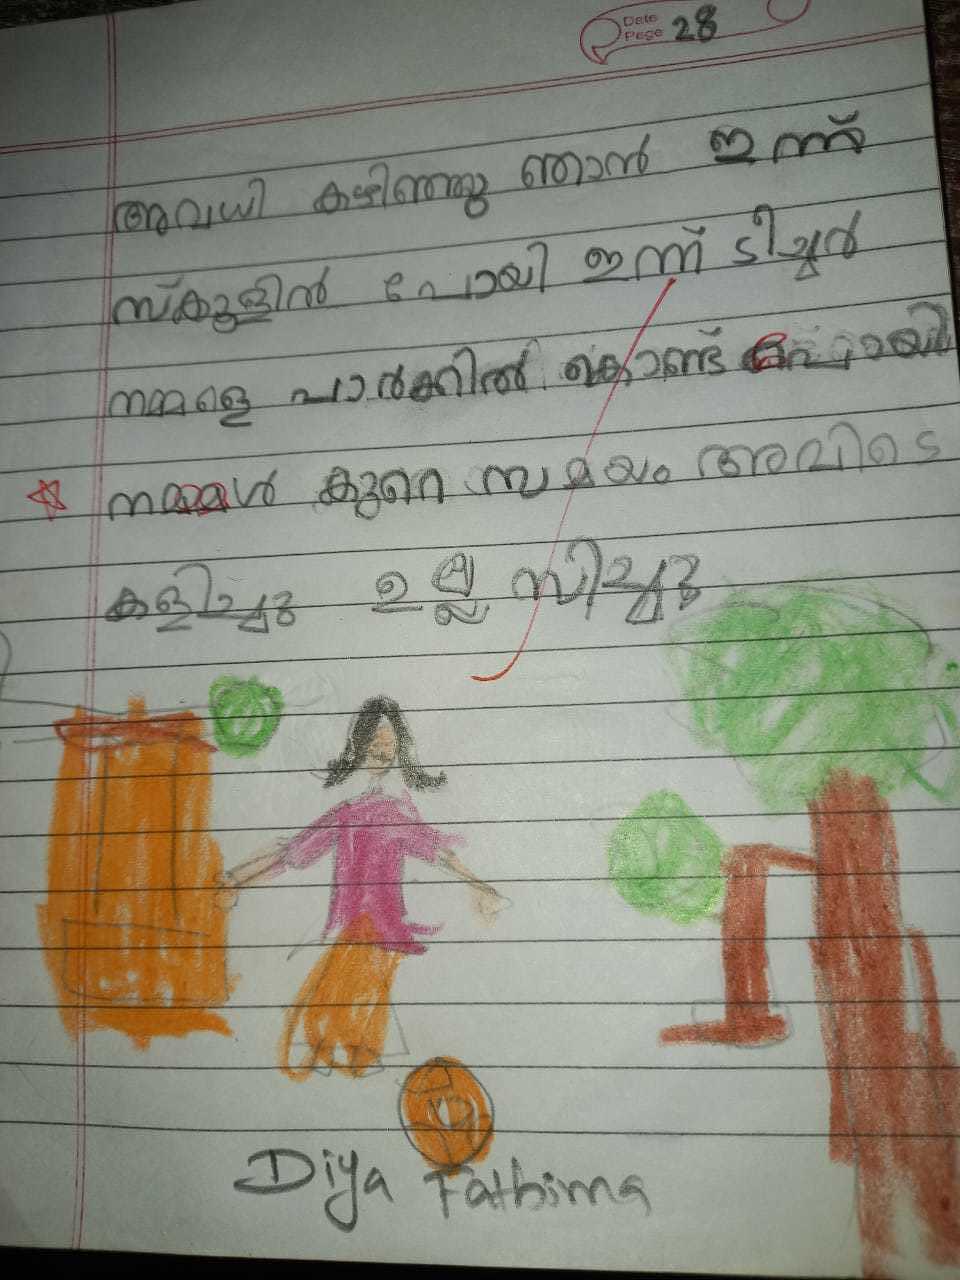 Date
Page 28
അവധി കഴിഞ്ഞു ഞാൻ ഇന്ന്
സ്കൂളിൽ പോയി ഇന്ന് ടീച്ചർ
നമ്മളെ പാർക്കിൽ കൊണ്ട് പോയി
നമ്മൾ കുറെ സമയം അവിടെ
കളിച്ചു ഉല്ലസിച്ചു
Diya Fathima